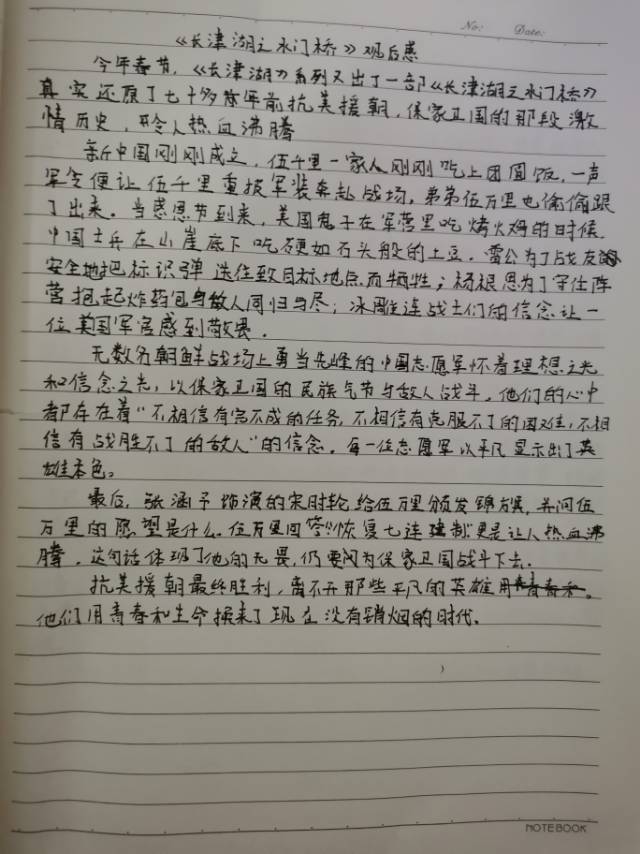 No:    Date:
《长津湖之水门桥》观后感
今年春节，《长津湖》系列又出了一部《长津湖之水门桥》
真实还原了七十多年前抗美援朝，保家卫国的那段激
情历史，令人热血沸腾
新中国刚刚成立，伍千里一家人刚刚吃上团圆饭，一声
军令便让伍千里重披军装奔赴战场，弟弟伍万里也偷偷跟
了出来。当感恩节到来，美国鬼子在军营里吃烤火鸡的时候，
中国士兵在山崖底下吃硬如石头般的土豆，雷公为了战友
安全地把标识弹送往致目标地点而牺牲；杨根思为了守住阵
营抱起炸药包与敌人同归与尽；冰雕连战士们的信念让一
位美国军官感到敬畏。
无数名朝鲜战场上勇当先峰的中国志愿军怀着理想之光
和信念之光，以保家卫国的民族气节与敌人战斗，他们的心中
都存在着“不相信有完不成的任务，不相信有克服不了的困难，不相
信有战胜不了的敌人”的信念。每一位志愿军以平凡显示出了英
雄本色。
最后，张涵予饰演的宋时轮给伍万里颁发锦旗，并问伍
万里的愿望是什么。伍万里回答“恢复七连建制”更是让人热血沸
腾，这句话体现了他的无畏，仍要为保家卫国战斗下去。
抗美援朝最终胜利，离不开那些平凡的英雄用青春和。
他们用青春和生命换来了现在没有硝烟的时代。
NOTEBOOK